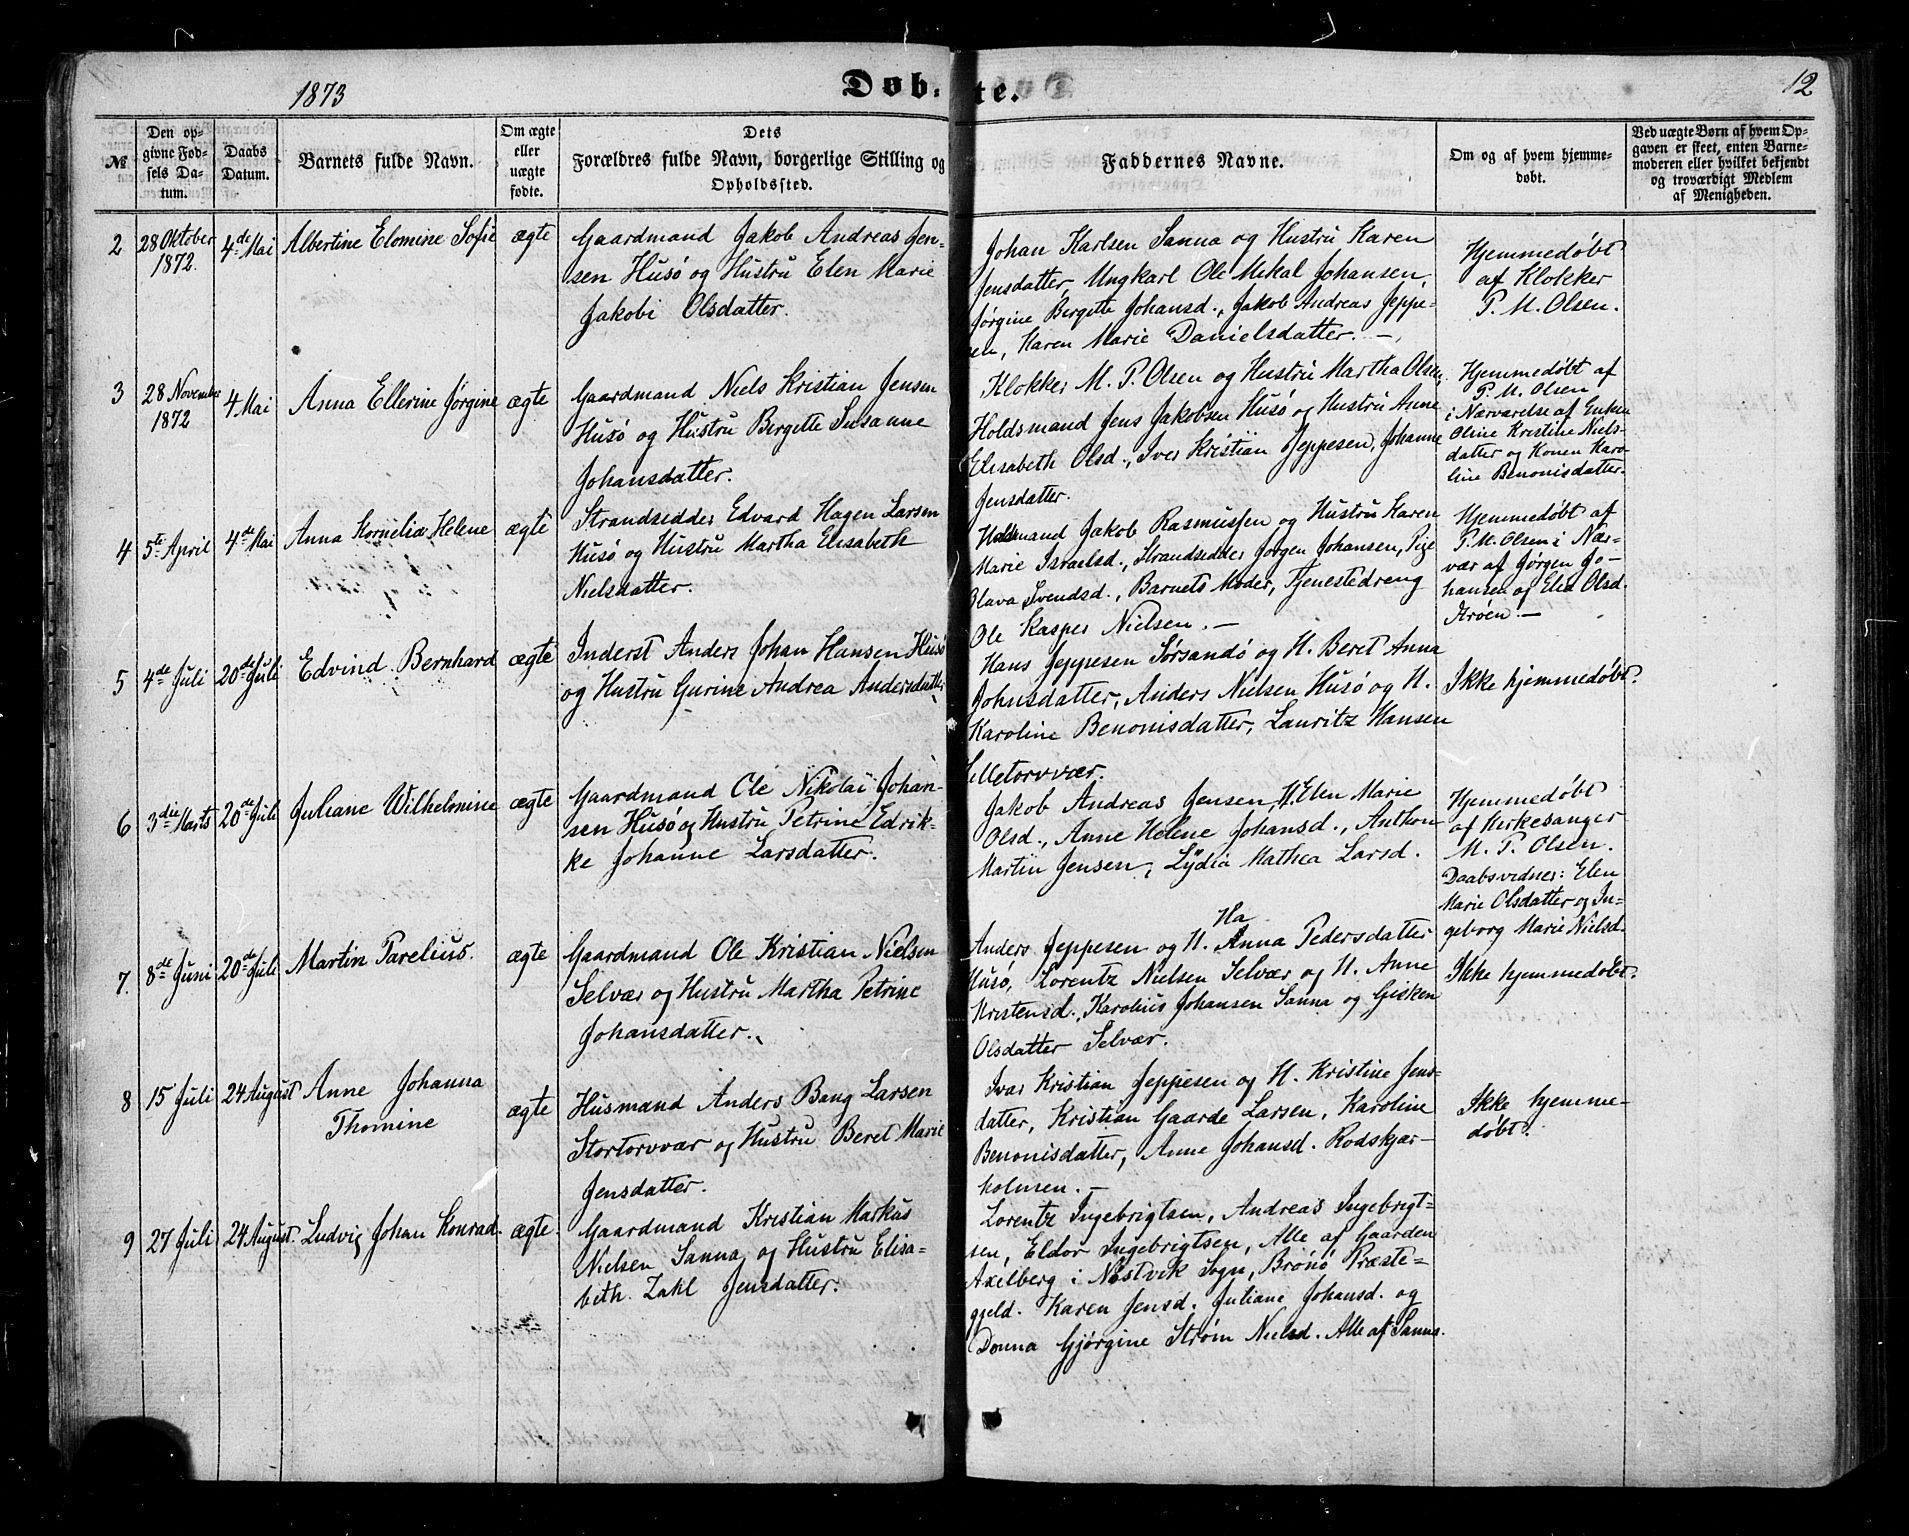 1873
Døbte.
12
№
Den opgivne Fødsels Datum.
Daabs Datum.
Barnets fulde Navn.
Om ægte eller uægte fødte.
Dets Forældres fulde Navn, borgerlige Stilling og Opholdssted.
Faddernes Navne.
Om og af hvem hjemmedøbt.
Ved uægte Børn af hvem Opgaven er skeet, enten Barnemoderen eller hvilket bekjendt og troværdigt Medlem af Menigheden.
2
28 Oktober
1872.
4de Mai
Albertine Elomine Sofie
ægte
Gaardmand Jakob Andreas Jen-
sen Husø og Hustru Elen Marie
Jakobi Olsdatter.
Johan Karlsen Sanna og Hustru Karen
Jensdatter, Ungkarl Ole Mikal Johansen,
Jørgine Bergette Johansd., Jakob Andreas Jeppe-
sen, Karen Marie Danielsdatter. —
Hjemmedøbt
af Klokker
P. M. Olsen.
3
28 November
1872
4 Mai
Anna Ellerine Jørgine
ægte
Gaardmand Niels Kristian Jensen
Husø og Hustru Bergette Susanne
Johansdatter.
Klokker M. P. Olsen og Hustru Martha Olsen,
Holdsmand Jens Jakobsen Husø og Hustru Anne
Elisabeth Olsd., Iver Kristian Jeppesen, Johanne
Jensdatter.
Hjemmedøbt af
P. M. Olsen
i Nærværelse af Enken
Oline Kristine Niels-
datter og Konen Karo-
line Benonisdatter.
4
5te April
4de Mai
Anna Kornelia Helene
ægte
Strandsidder Edvard Hagen Larsen
Husø og Hustru Martha Elisabeth
Nielsdatter.
Holdsmand Jakob Rasmussen og Hustru Karen
Marie Israelsd., Strandsidder Jørgen Johansen, Pige
Olava Svendsd., Barnets Moder, Tjenestedreng
Ole Kasper Nielsen. —
Hjemmedøbt af
P. M. Olsen i Nær-
vær af Jørgen Jo-
hansen og Elen Olsd.
5
4de Juli
20de Juli
Edvind Bernhard
ægte
Inderst Anders Johan Hansen Husø
og Hustru Gurine Andrea Andersdatter
Hans Jeppesen Sørsandø og H. Beret Anna
Johnsdatter, Anders Nielsen Husø og H.
Karoline Benonisdatter, Lauritz Hansen
Lilletorvvær.
Ikke hjemmedøbt.
6
3die Marts
20de Juli
Juliane Wilhelmine
ægte
Gaardmand Ole Nikolai Johan-
sen Husø og Hustru Petrine Edrik-
ke Johanne Larsdatter.
Jakob Andreas Jensen, H. Elen Marie
Olsd., Anne Helene Johansd., Anthon
Martin Jensen, Lydia Mathea Larsd.
Hjemmedøbt
af Kirkesanger
M. P. Olsen.
Daabsvidner: Elen
Marie Olsdatter og In-
geborg Marie Nielsd.
7.
8de Juni
20de Juli
Martin Parelius.
ægte
Gaardmand Ole Kristian Nielsen
Selvær og Hustru Martha Petrine
Johansdatter.
Ha
Anders Jeppesen og H. Anna Pedersdatter
Husø, Lorentz Nielsen Selvær og H. Anne
Kristensd., Karolius Johansen Sanna og Gisken
Olsdatter Selvær.
Ikke hjemmedøbt.
8
15 Juli
24 August
Anne Johanna
Thomine
ægte
Husmand Anders Bang Larsen
Stortorvvær og Hustru Beret Marie
Jensdatter.
Ivar Kristian Jeppesen og H. Kristine Jens-
datter, Kristian Gaarde Larsen, Karoline
Benonisdatter, Anne Johansd. Rodskjær-
holmen. —
Ikke hjemme-
døbt.
9
27 Juli
24 August.
Ludvig Johan Konrad.
ægte.
Gaardmand Kristian Markus
Nielsen Sanna og Hustru Elisa-
beth Zakl Jensdatter.
Lorentz Ingebrigtsen, Andreas Ingebrigt-
sen, Eldor Ingebrigtsen, Alle af Gaarden
Axelberg i Nøstvik Sogn, Brønø Præste-
gjeld. Karen Jensd. Juliane Johansd. og
Donna Gjørgine Strøm Nielsd. Alle af Sanna.